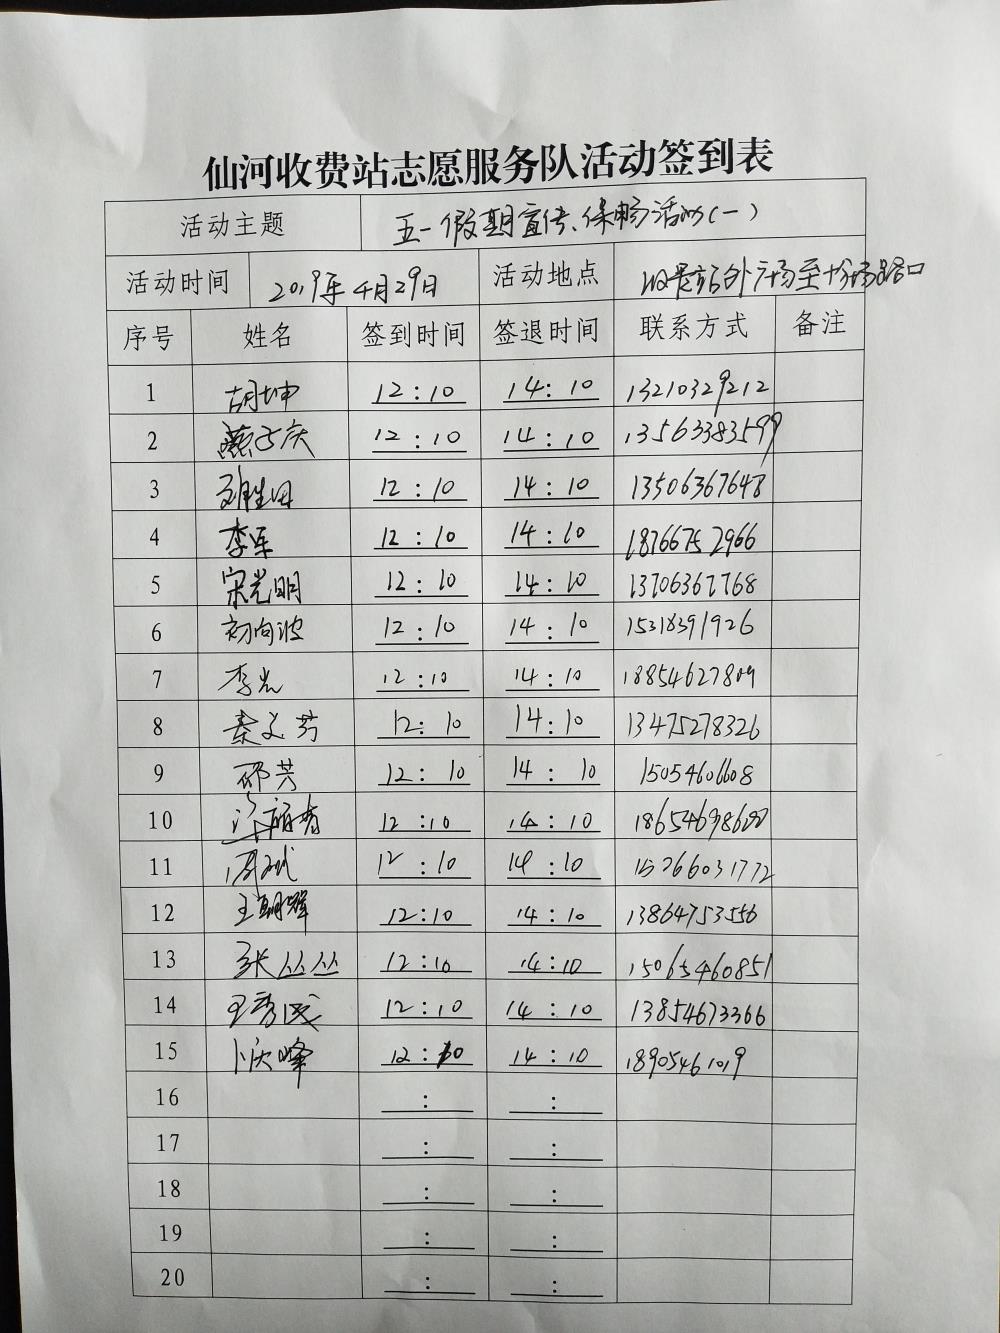 仙河收费站志愿服务队活动签到表
活动主题 五一假期宣传、保畅活动(一)
活动时间 2019年4月29日 活动地点 收费站外广场至十分场路口
序号 姓名 签到时间 签退时间 联系方式 备注
1 胡坤 12:10 14:10 13210329212
2 燕子庆 12:10 14:10 13563383599
3 12:10 14:10 13506367648
4 李军 12:10 14:10 18766752966
5 宋光明 12:10 14:10 13706367768
6 初向波 12:10 14:10 15318391926
7 李光 12:10 14:10 18854627809
8 秦文芳 12:10 14:10 13475278326
9 邵芳 12:10 14:10 15054606608
10 12:10 14:10
11 周斌 12:10 14:10 15266031772
12 王朝辉 12:10 14:10 13864753556
13 张丛丛 12:10 14:10 15065460851
14 12:10 14:10 13854673366
15 卜庆峰 12:10 14:10 18905461019
16 : :
17 : :
18 : :
19 : :
20 : :